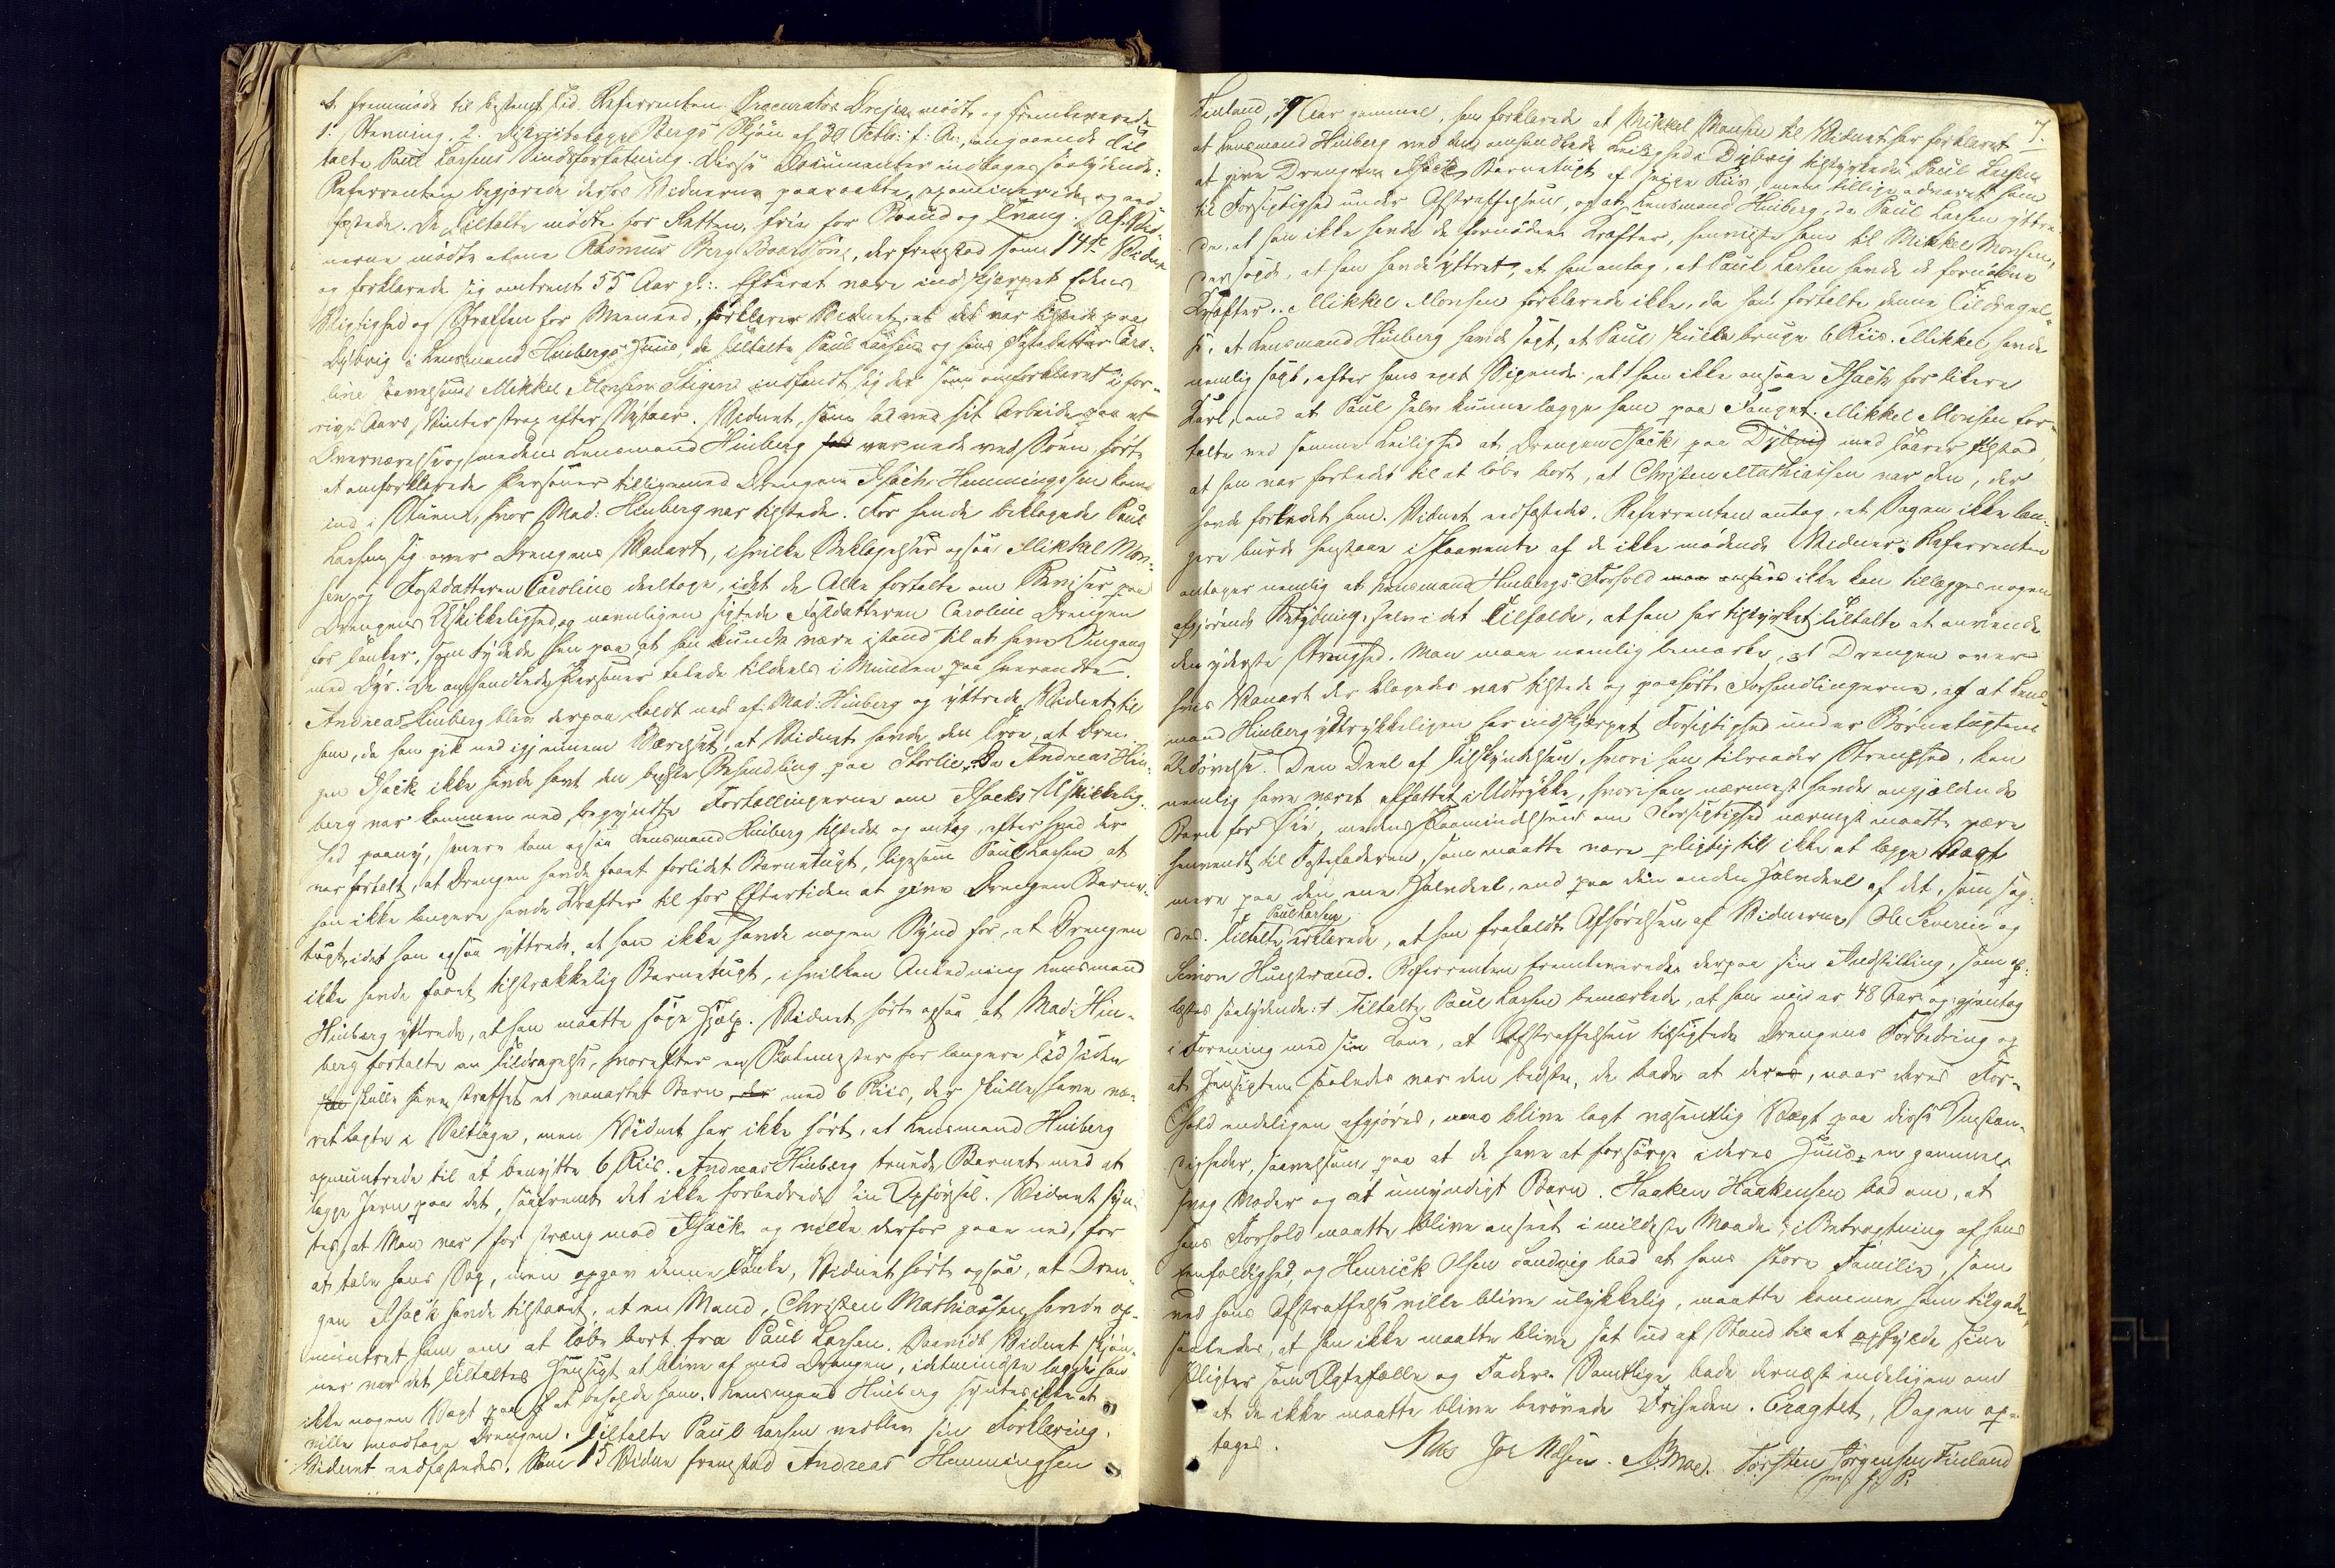 t. fremmøde til bestemt Tid. Referenten Procurator Dreyer mødte og fremleverede
1. Stevning. 2. Districtslæge Bergs Skjøn af 30 Octbr. f: A:, angaaende Til
talte Paul Larsens Sindsforfatning. Disse Documenter indtages saalydende:
Referenten begjærede derhos Vidnerne paaraabte, examinerede og eed-
fæstede. De Tiltalte mødte for Retten, frie for Baand og Tvang. Af Vid-
nerne mødte alene Rasmus Berg Baardsøn, der fremstod som 14de Vidne
og forklarede sig omtrent 55 Aar gl:. Efterat være indskjærpet Edens
Vigtighed og Straffen for Meeneed, forklarer Vidnet, at det var tilstede paa
Dybvig i Lensmand Hinbergs Huus, da Tiltalte Paul Larsen og hans Fostdatter Caro-
line saavelsom Mikkel Monsen Stigen indfandt sig der som omforklaret i for-
rige Aars Vinter strax efter Nytaar. Vidnet, som sad ved sit Arbeide paa et
Oververelse og medens Lensmand Hinberg var nede ved Søen, hørte
at omforklarede Personer tilligemed Drengen Isach Hemmingssen kom
ind i Stuen, hvor Mad: Hinberg var tilstede. For hende beklagede Paul
Larsen sig over Drengens Vanart, i hvilke Beklagelser ogsaa Mikkel Mon-
sen og Fostdatteren Caroline deeltoge, idet de Alle fortalte om Beviser paa
Drengens Uskikkelighed, og navnligen sigtede Fostdatteren Caroline Drengen
for Tanker, som tydede hen paa, at han kunde være istand til at have Omgang
med Dyr. De omhandlede Personer talede tildeels i Munden paa hverandre.
Andreas Hinberg blev derpaa kaldt ned af Mad: Hinberg og yttrede Vidnet til
ham, da han gik ned igjennem Værelset, at Vidnet havde den Troe, at Dren-
gen Isack ikke havde havt den bedste Behandling paa Storlie. Da Andreas Hin-
berg var kommen ned, begyndte Fortællingerne om Isacks Uskikkelig-
hed paany, senere kom ogsaa Lensmand Hinberg tilstede og antog, efter hvad der
var fortalt, at Drengen havde faaet forlidet Barnetugt, ligesom Paul Larsen, at
han ikke længere havde Kræfter til for Eftertiden at give Drengen Barne-
tugt, idet han ogsaa yttrede, at han ikke havde nogen Synd for, at Drengen
ikke havde faaet tilstrækkelig Barnetugt, i hvilken Anledning Lensmand
Hinberg yttrede, at han maatte søge Hjælp. Vidnet hørte ogsaa at Mad: Hin-
berg fortalte en Tildragelse, hvorefter en Skolemester for længere Tid siden
skulle have straffet et vanartet Barn med 6 Riis, der skulle have væ-
ret lagte i Saltlage, men Vidnet har ikke hørt, at Lensmand Hinberg
opmuntrede til at benytte 6 Riis. Andreas Hinberg truede Barnet med at
lægge Jern paa det, saafremt det ikke forbedrede sin Opførsel. Vidnet syn-
tes, at Man var for streng mod Isack og vilde derfor gaae ned, for
at tale hans Sag, men opgav denne Tanke, Vidnet hørte ogsaa, at Dren-
gen Isack havde tilstaaet, at en Mand, Christen Mathiassen havde op-
muntret ham om at løbe bort fra Paul Larsen. Saavidt Vidnet skjøn-
ner var det Tiltaltes Hensigt at blive af med Drengen, idetmindste lagde han
ikke nogen Vægt paa at beholde ham. Lensmand Hinberg syntes ikke at
ville modtage Drengen. Tiltalte Paul Larsen vedblev sin Forklaring.
Vidnet eedfæstedes. Som 15 Vidne fremstod Andreas Hemmingsen
7.
Finland, 37 Aar gammel, han forklarede at Mikkel Monsen til Vidnet har forklaret
at Lensmand Hinberg ved den omhandlede Leilighed i Dybvig tilskyndede Paul Larsen
at give Drengen Isack Barnetugt af Riis, men tillige advaret ham
til Forsigtighed under Afstraffelsen, og at Lensmand Hinberg, da Paul Larsen yttre-
de, at han ikke havde de fornødne Kræfter, henviste ham til Mikkel Monsen,
der sagde, at han havde yttret, at han antog, at Paul Larsen havde de fornødne
Kræfter. Mikkel Monsen forklarede ikke, da han fortalte denne Tildragel-
se, at Lensmand Hinberg havde sagt, at Paul skulle bruge 6 Riis. Mikkel havde
nemlig sagt, efter hans eget Sigende, at han ikke ansaae Isach for likere
Karl, end at Paul selv kunne lægge ham paa Fanget. Mikkel Monsen for-
talte ved samme Leilighed at Drengen Isack paa Dybvig med Taarer tilstod,
at han var forledet til at løbe bort, at Christen Mathiassen var den, der
havde forledet ham. Vidnet eedfæstedes. Referenten antog, at Sagen ikke læn-
gere burde henstaae i Paavente af de ikke mødende Vidner. Referenten
antager nemlig at Lensmand Hinbergs Forhold ikke kan tillægges nogen
afgjørende Betydning, selv i det Tilfælde, at han har tilskyndet Tiltalte at anvende
den yderste Strenghed. Man maae nemlig bemærke, at Drengen over
hvis Vanart der klagedes var tilstede og paahørte Forhandlingerne, og at Lens-
mand Hinberg udtrykkeligen har indskjærpet Forsigtighed under Børnetugtens
Udøvelse. Den Deel af Tilskyndelsen, hvori han tilraader Strenghed, kan
nemlig have været affattet i Udtrykke, hvori han nærmest havde angjældende
Barn for Øie, medens Paamindelsen om Forsigtighed nærmest maatte være
henvendt til Fosterfaderen, som maatte være pligtig til ikke at lægge Vægt
mere paa den ene Halvdeel, end paa den anden Halvdeel af det, som sag-
des. Tiltalte Paul Larsen erklærede, at han frafaldt Afhørelsen af Vidnerne Ole Severin og
Simon Hugstrand. Referenten fremleverede derpaa sin Indstilling, som op-
læstes saalydende: † Tiltalte Paul Larsen bemærkede, at han nu er 48 Aar og gjentog
i Forening med sin Kone, at Afstraffelsen tilsigtede Drengens Forbedring og
at Hensigten saaledes var den bedste, de bade at der, naar deres For-
hold endeligen afgjøres, maa blive lagt væsentlig Vægt paa disse Omstæn-
digheder, saavelsom paa at de have at forsørge i deres Huus en gammel
svag Moder og et umyndigt Barn. Haaken Haakensen bad om, at
hans Forhold maatte blive anseet i mildeste Maade i Betragtning af hans
Eenfoldighed, og Henrick Olsen Sandvig bad at hans store Familie, som
ved hans Afstraffelse ville blive ulykkelig, maatte komme ham tilgode,
saaledes, at han ikke maatte blive sat ud af Stand til at opfylde sine
Pligter som Ægtefælle og Fader. Samtlige bade dernæst endeligen om
at de ikke maatte blive berøvede Friheden. Eragtet, Sagen op-
tages.
Joe Nilsen. Torsten Jørgensen Finland
m. f. P.